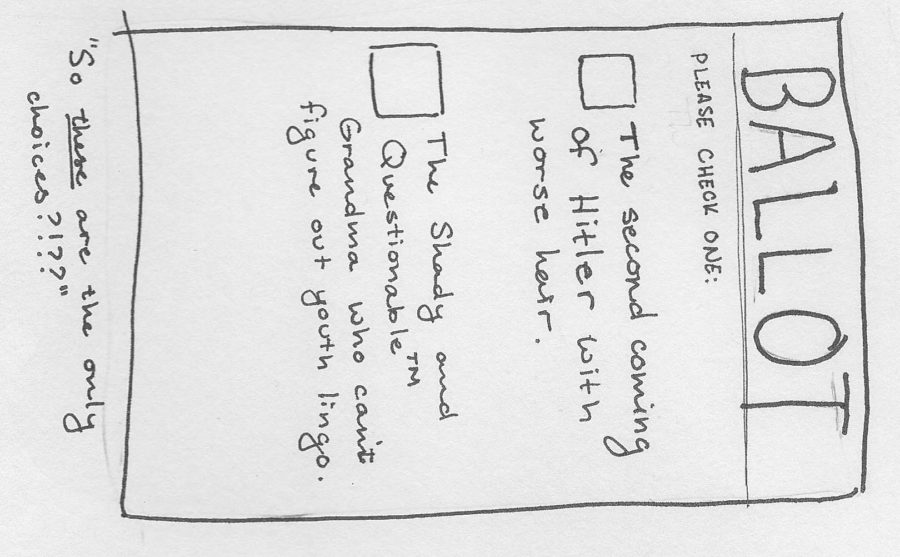 BALLOT
PLEASE CHECK ONE:
The second coming
of Hitler with
worse hair.
The Shady and
Questionable™
Grandma who can't
figure out youth lingo.
"So these are the only
choices?!???"